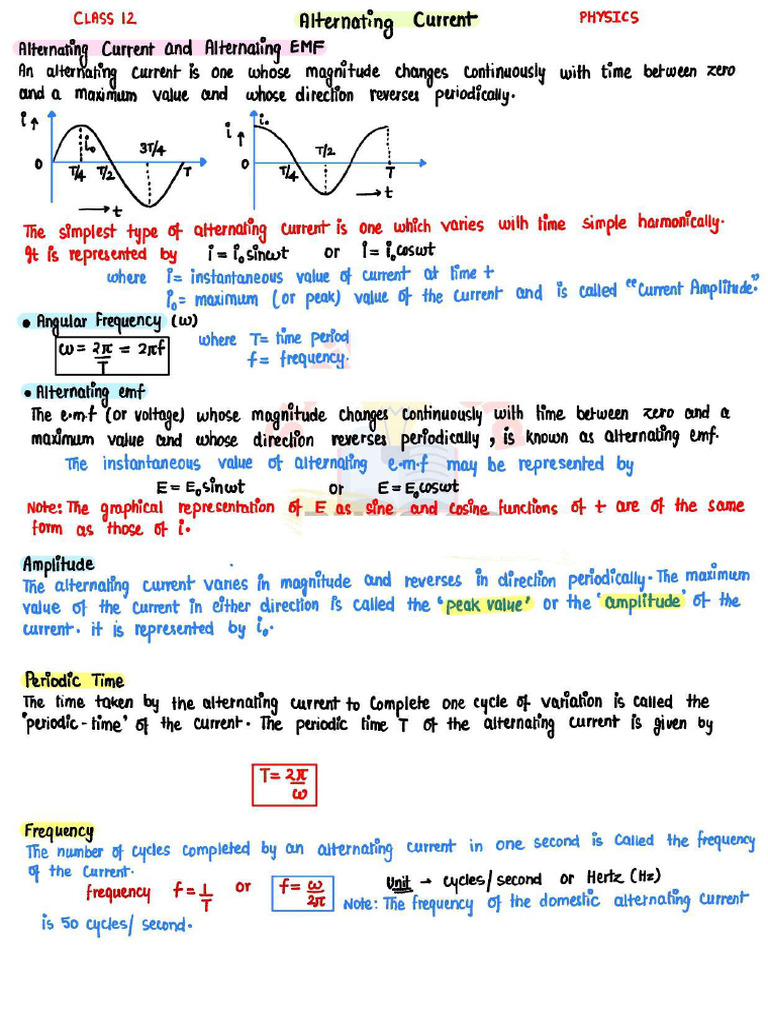 CLASS 12
Alternating Current
PHYSICS
Alternating Current and Alternating EMF
An alternating current is one whose magnitude changes continuously with time between zero
and a maximum value and whose direction reverses periodically.
i↑
i₀
3T/4
0
T/4
T/2
T
→t
i₀
i↑
T/2
0
T/4
T
→t
The simplest type of alternating current is one which varies with time simple harmonically.
It is represented by i = i₀sinωt or i = i₀cosωt
where i= instantaneous value of current at time t
i₀= maximum (or peak) value of the current and is called "Current Amplitude."
• Angular Frequency (ω)
ω = 2π/T = 2πf
where T= time period
f = frequency.
• Alternating emf
The e.m.f (or voltage) whose magnitude changes continuously with time between zero and a
maximum value and whose direction reverses periodically, is known as alternating emf.
The instantaneous value of alternating e.m.f may be represented by
E = E₀sinωt or E = E₀cosωt
Note: The graphical representation of E as sine and cosine functions of t are of the same
form as those of i.
Amplitude
The alternating current varies in magnitude and reverses in direction periodically. The maximum
value of the current in either direction is called the 'peak value' or the 'amplitude' of the
current. it is represented by i₀.
Periodic Time
The time taken by the alternating current to complete one cycle of variation is called the
'periodic-time' of the current. The periodic time T of the alternating current is given by
T = 2π/ω
Frequency
The number of cycles completed by an alternating current in one second is called the frequency
of the current.
frequency f = 1/T or f = ω/2π Unit → cycles/second or Hertz (Hz)
Note: The frequency of the domestic alternating current
is 50 cycles/second.